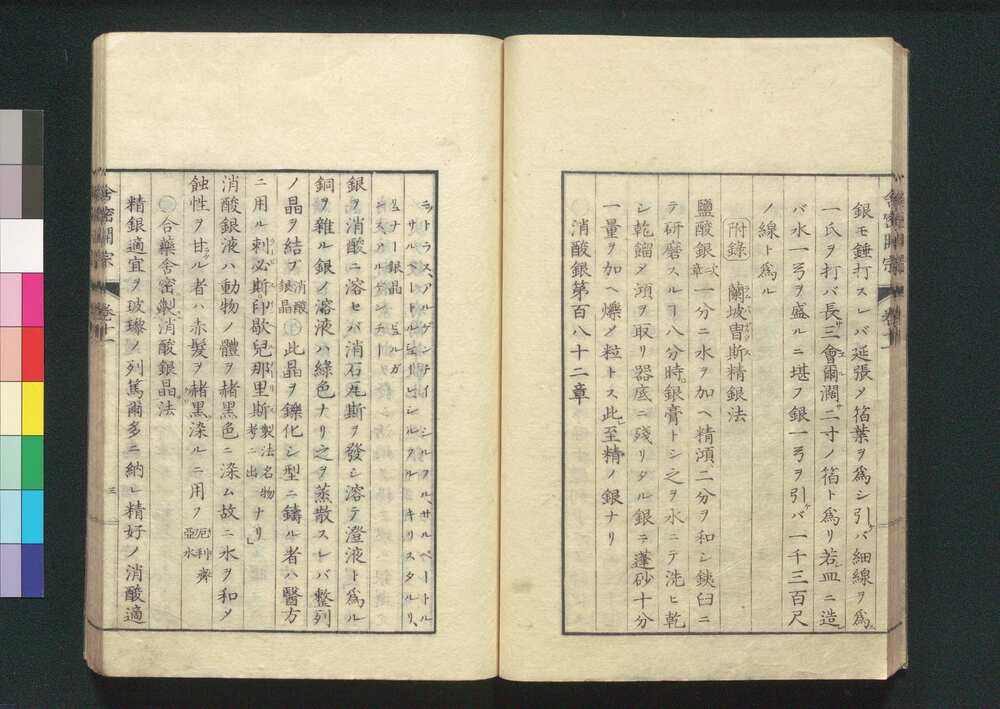 銀モ錘打スレバ延張メ箔葉ヲ爲シ引バ細線ヲ爲
一氏ヲ打バ長三會爾濶二寸ノ箔ト爲リ若皿ニ造
バ水一弓ヲ盛ルニ堪フ銀一弓ヲ引バ一千三百尺
ノ線ト爲ル
附錄 蘭坡曺斯精銀法
鹽酸銀次章一分ニ水ヲ加ヘ精澒二分ヲ和シ鉄臼ニ
テ研磨スルヿ八分時銀膏トシ之ヲ水ニテ洗ヒ乾
シ乾餾メ澒ヲ取リ器底ニ殘リタル銀ニ蓬砂十分
一量ヲ加ヘ爍メ粒トス此至精ノ銀ナリ
消酸銀第百八十二章
舎密開宗 卷十一
ニトラス、アルゲンテイ シルフルサルペートル
サルペートルシルフル キリスタルリ、
リュナー銀晶
銀ヲ消酸ニ溶セバ消石瓦斯ヲ發シ溶テ澄液ト爲ル
銅ヲ雜ル銀ノ溶液ハ綠色ナリ之ヲ蒸散スレバ整列
ノ晶ヲ結ブ消酸銀晶此晶ヲ鑠化シ型ニ鑄ル者ハ醫方
ニ用ル刺必斯印歇兒那里斯製法名物考ニ出ナリ
消酸銀液ハ動物ノ體ヲ赭黑色ニ染ム故ニ水ヲ和メ
蝕性ヲ甘ル者ハ赤髮ヲ赭黑染ルニ用フ厄利齊亞水
合藥舍密製消酸銀晶法
精銀適宜ヲ玻璨ノ列篤爾多ニ納レ精好ノ消酸適
舎密開宗 卷十一 三